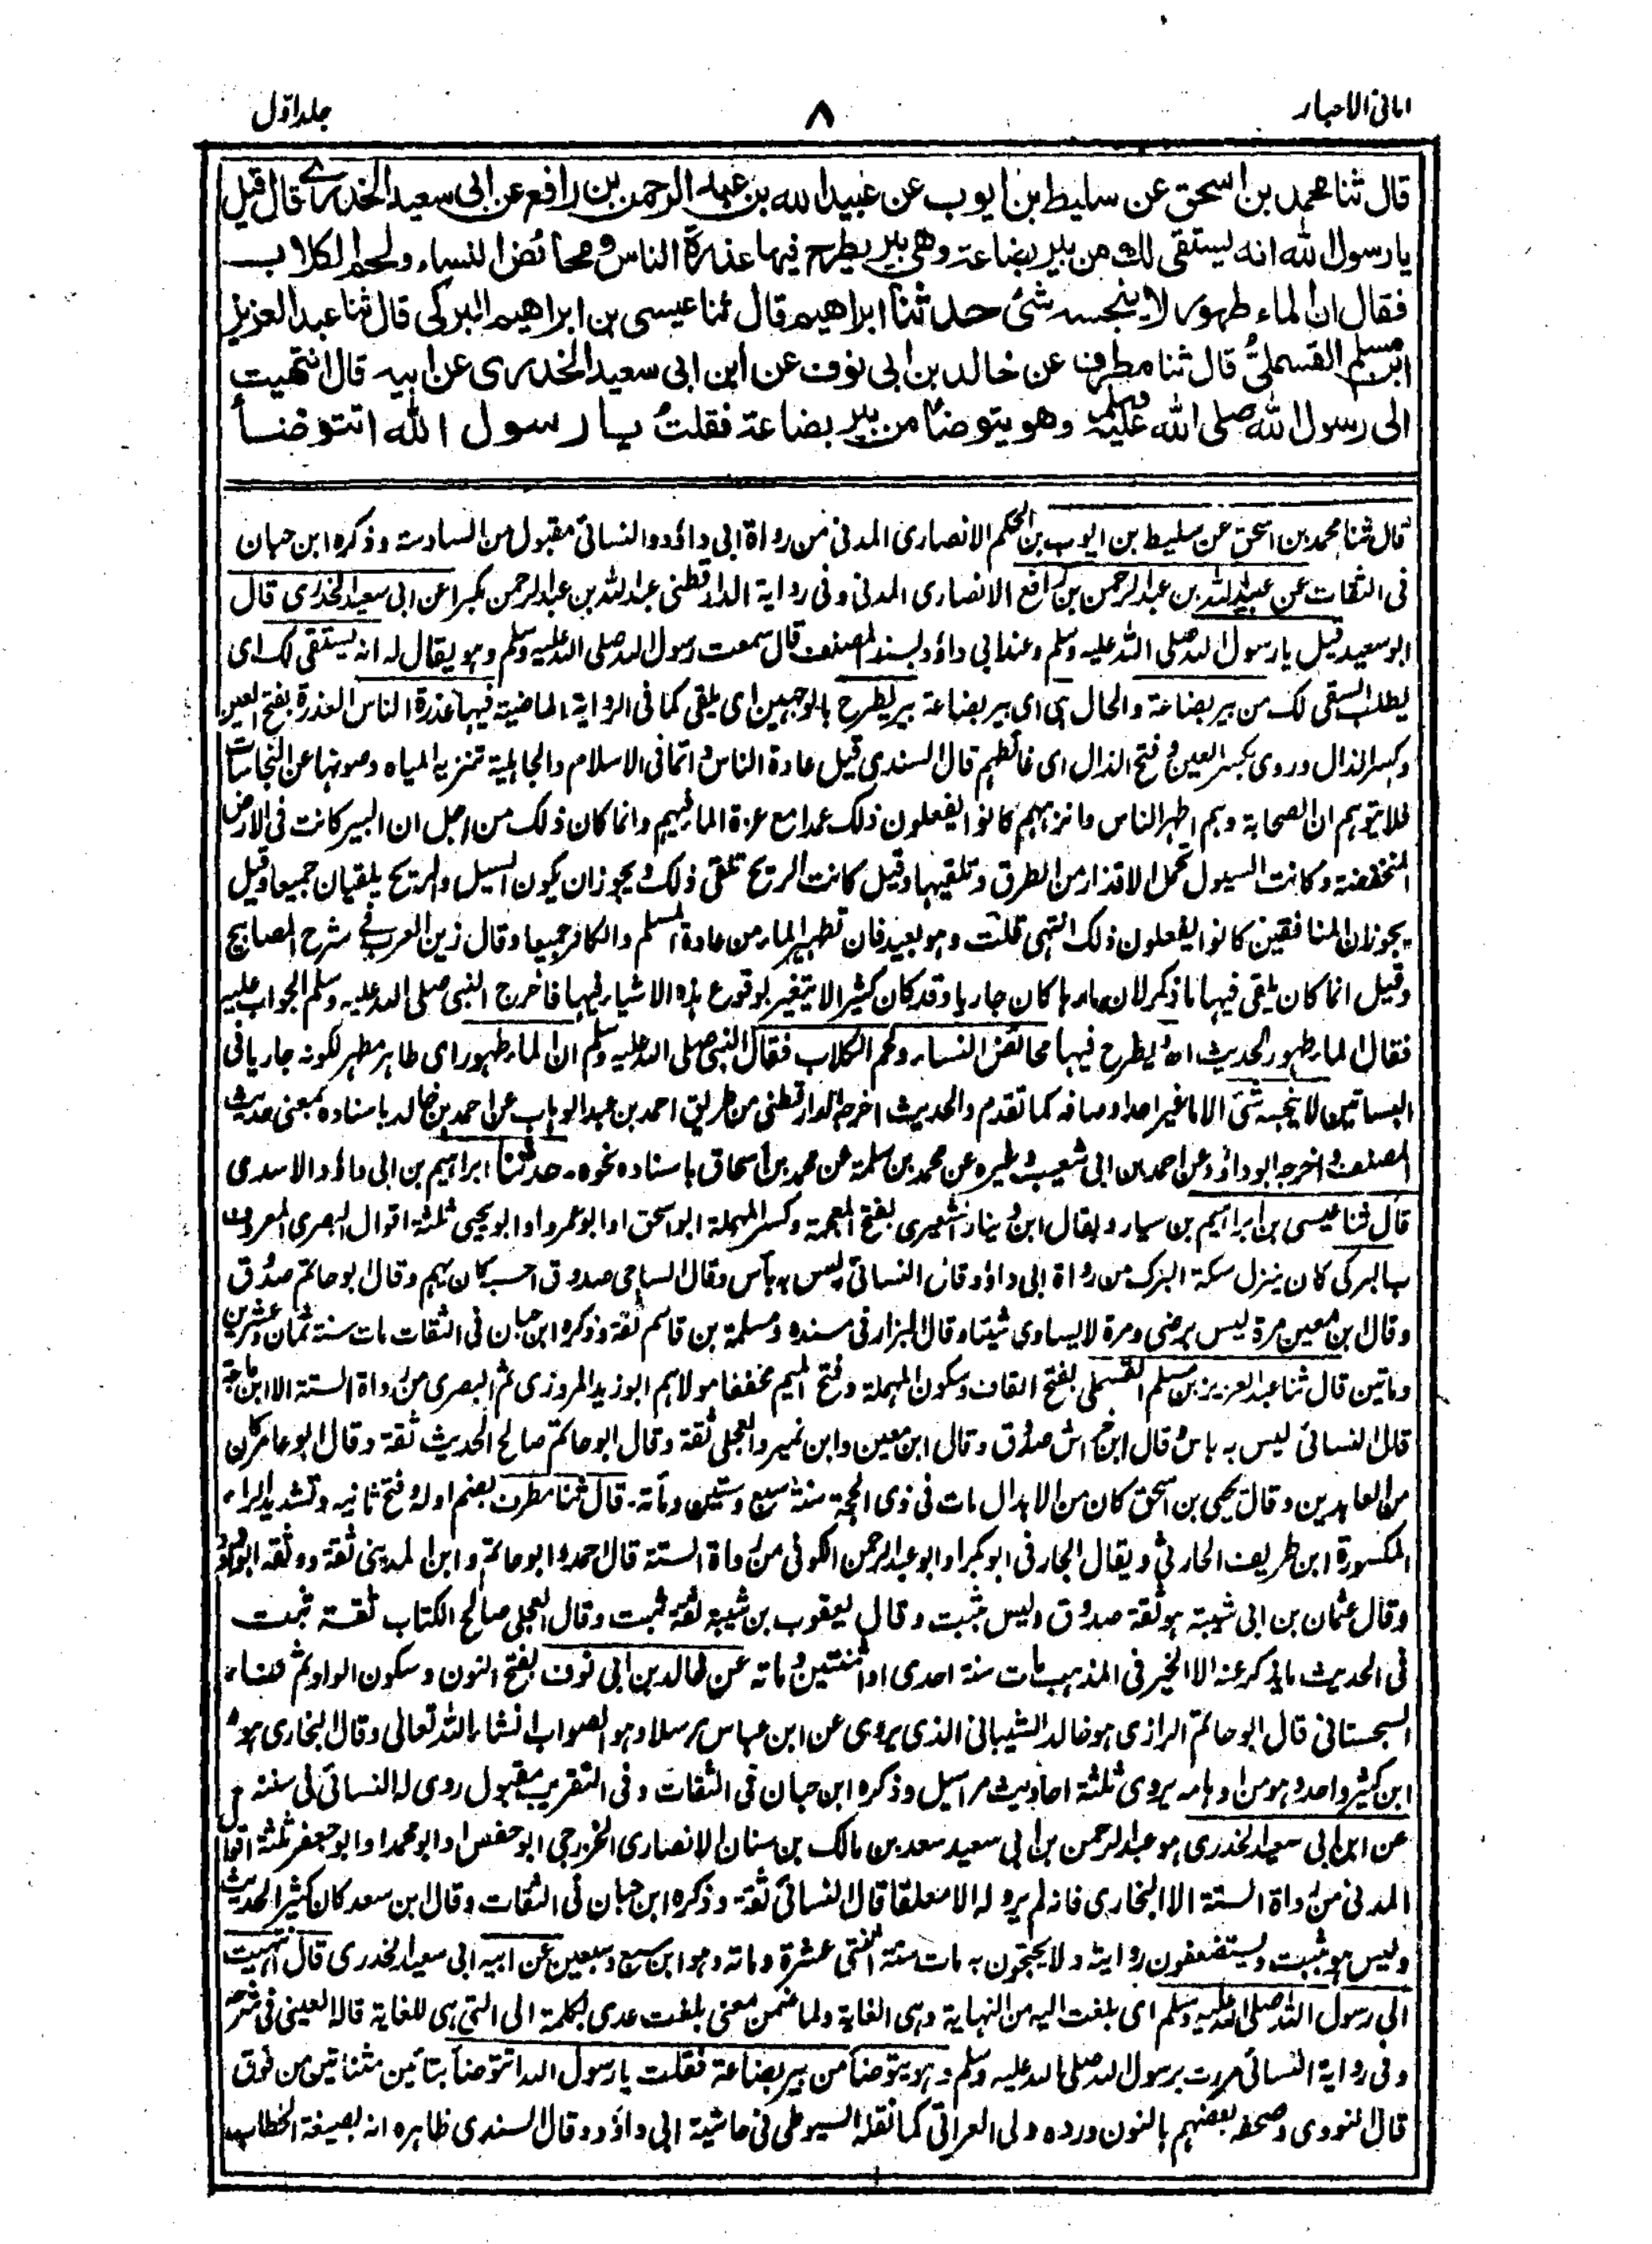 امانی الاحبار
۸
جلد اوّل
قال ثنا محمد بن اسحق عن سليط بن ايوب عن عبيد الله بن عبد الرحمن بن رافع عن ابی سعيد الخدری قال قيل
يا رسول الله انه يستقی لك من بير بضاعة وهی بير يطرح فيها عذرة الناس ومحائض النساء ولحم الكلاب
فقال ان الماء طهور لا ينجسه شئ حدثنا ابراهيم قال ثنا عيسی بن ابراهيم البركی قال ثنا عبد العزيز
ابن مسلم القسملی قال ثنا مطرف عن خالد بن ابی نوف عن ابن ابی سعيد الخدری عن ابيه قال انتهيت
الی رسول الله صلی الله عليه وسلم وهو يتوضأ من بير بضاعة فقلت يا رسول الله اتتوضأ
قال ثنا محمد بن اسحق عن سليط بن ايوب بن الحكم الانصاری المدنی من رواة ابی داؤد والنسائی مقبول من السادسة وذكره ابن حبان
فی الثقات عن عبيد الله بن عبد الرحمن بن رافع الانصاری المدنی وفی رواية الدارقطنی عبد الله بن عبد الرحمن مكبرا عن ابی سعيد الخدری قال
ابو سعيد قيل يا رسول الله صلی الله عليه وسلم وعند ابی داؤد بسند المصنف قال سمعت رسول الله صلی الله عليه وسلم وهو يقال له انه يستقی لك ای
يطلب السقی لك من بير بضاعة والحال هی ای بير بضاعة بير يطرح بالوجهين ای يلقی كما فی الرواية الماضية فيها عذرة الناس العذرة بفتح العين
وكسر الذال وروی بكسر العين وفتح الذال ای غائطهم قال السندی قيل عادة الناس دائما فی الاسلام والجاهلية تنزيه المياه وصونها عن النجاسات
فلا يتوهم ان الصحابة وهم اطهر الناس وانزههم كانوا يفعلون ذلك عمدا مع عزة الماء فيهم وانما كان ذلك من اجل ان البير كانت فی الارض
المنخفضة وكانت السيول تحمل الاقذار من الطرق وتلقيها وقيل كانت الريح تلقی ذلك ويجوز ان يكون السيل والريح يلقيان جميعا وقيل
يجوز ان المنافقين كانوا يفعلون ذلك انتهی قلت وهو بعيد فان تطهير الماء من عادة المسلم والكافر جميعا وقال زين العرب فی شرح المصابيح
وقيل انما كان يلقی فيها ما ذكر لان ماءها كان جاريا وقد كان كثيرا لا يتغير بوقوع هذه الاشياء فيها فاخرج النبی صلی الله عليه وسلم الجواب عليه
فقال الماء طهور الحديث اه يطرح فيها محائض النساء ولحم الكلاب فقال النبی صلی الله عليه وسلم ان الماء طهور ای طاهر مطهر لكونه جاريا فی
البساتين لا ينجسه شئ الا ما غير احد اوصافه كما تقدم والحديث اخرجه الدارقطنی من طريق احمد بن عبد الوهاب عن احمد بن خالد باسناده بمعنی حديث
المصنف واخرجه ابو داؤد عن احمد بن ابی شعيب وغيره عن محمد بن سلمة عن محمد بن اسحاق باسناده نحوه۔ حدثنا ابراهيم بن ابی داؤد الاسدی
قال ثنا عيسی بن ابراهيم بن سيار ويقال ابن دينار الشعيری بفتح المعجمة وكسر المهملة ابو اسحق او ابو عمرو او ابو يحيی ثلثة اقوال البصری المعروف
بالبركی كان ينزل سكة البرك من رواة ابی داؤد وقال النسائی ليس به بأس وقال الساجی صدوق احسبه كان يهم وقال ابو حاتم صدوق
وقال ابن معين مرة ليس برضی ومرة لا يساوی شيئا وقال البزار فی مسنده ومسلمة بن قاسم ثقة وذكره ابن حبان فی الثقات مات سنة ثمان وعشرين
وماتين قال ثنا عبد العزيز بن مسلم القسملی بفتح القاف وسكون المهملة وفتح الميم مخففا مولاهم ابو زيد المروزی ثم البصری من رواة الستة الا ابن ماجة
قال النسائی ليس به باس وقال ابن خراش صدوق وقال ابن معين وابن نمير والعجلی ثقة وقال ابو حاتم صالح الحديث ثقة وقال ابو عامر كان
من العابدين وقال يحيی بن اسحق كان من الابدال مات فی ذی الحجة سنة سبع وستين ومأتة۔ قال ثنا مطرف بضم اوله وفتح ثانيه وتشديد الراء
المكسورة ابن طريف الحارثی ويقال الجارفی ابو بكر او ابو عبد الرحمن الكوفی من رواة الستة قال احمد وابو حاتم وابن المدينی ثقة ووثقه ابو داؤد
وقال عثمان بن ابی شيبة هو ثقة صدوق وليس بثبت وقال يعقوب بن شيبة ثقة ثبت وقال العجلی صالح الكتاب ثقة ثبت
فی الحديث ما يذكر عنه الا الخير فی المذهب مات سنة احدی او اثنتين ومائة عن خالد بن ابی نوف بفتح النون وسكون الواو ثم فاء
السجستانی قال ابو حاتم الرازی هو خالد الشيبانی الذی يروی عن ابن عباس مرسلا وهو الصواب انشاء الله تعالی وقال البخاری هو
ابن كثير واحد وهو من اوهامه يروی ثلثة احاديث مراسيل وذكره ابن حبان فی الثقات وفی التقريب مقبول روی له النسائی فی سننه
عن ابن ابی سعيد الخدری هو عبد الرحمن بن ابی سعيد سعد بن مالك بن سنان الانصاری الخزرجی ابو حفص او ابو محمد او ابو جعفر ثلثة اقوال
المدنی من رواة الستة الا البخاری فانه لم يرو له الا معلقا قال النسائی ثقة وذكره ابن حبان فی الثقات وقال ابن سعد كان كثير الحديث
وليس هو بثبت ويستضعفون روايته ولا يحتجون به مات سنة اثنتی عشرة ومائة وهو ابن سبع وسبعين عن ابيه ابی سعيد الخدری قال انتهيت
الی رسول الله صلی الله عليه وسلم ای بلغت اليه من النهاية وهی الغاية ولما ضمن معنی بلغت عدی بكلمة الی التی هی للغاية قاله العينی فی شرحه
وفی رواية النسائی مررت برسول الله صلی الله عليه وسلم وهو يتوضأ من بير بضاعة فقلت يا رسول الله اتتوضأ بتائين مثناتين من فوق
قال النووی وصحفه بعضهم بالنون ورده ولی العراقی كما نقله السيوطی فی حاشية ابی داؤد وقال السندی ظاهره انه بصيغة الخطاب